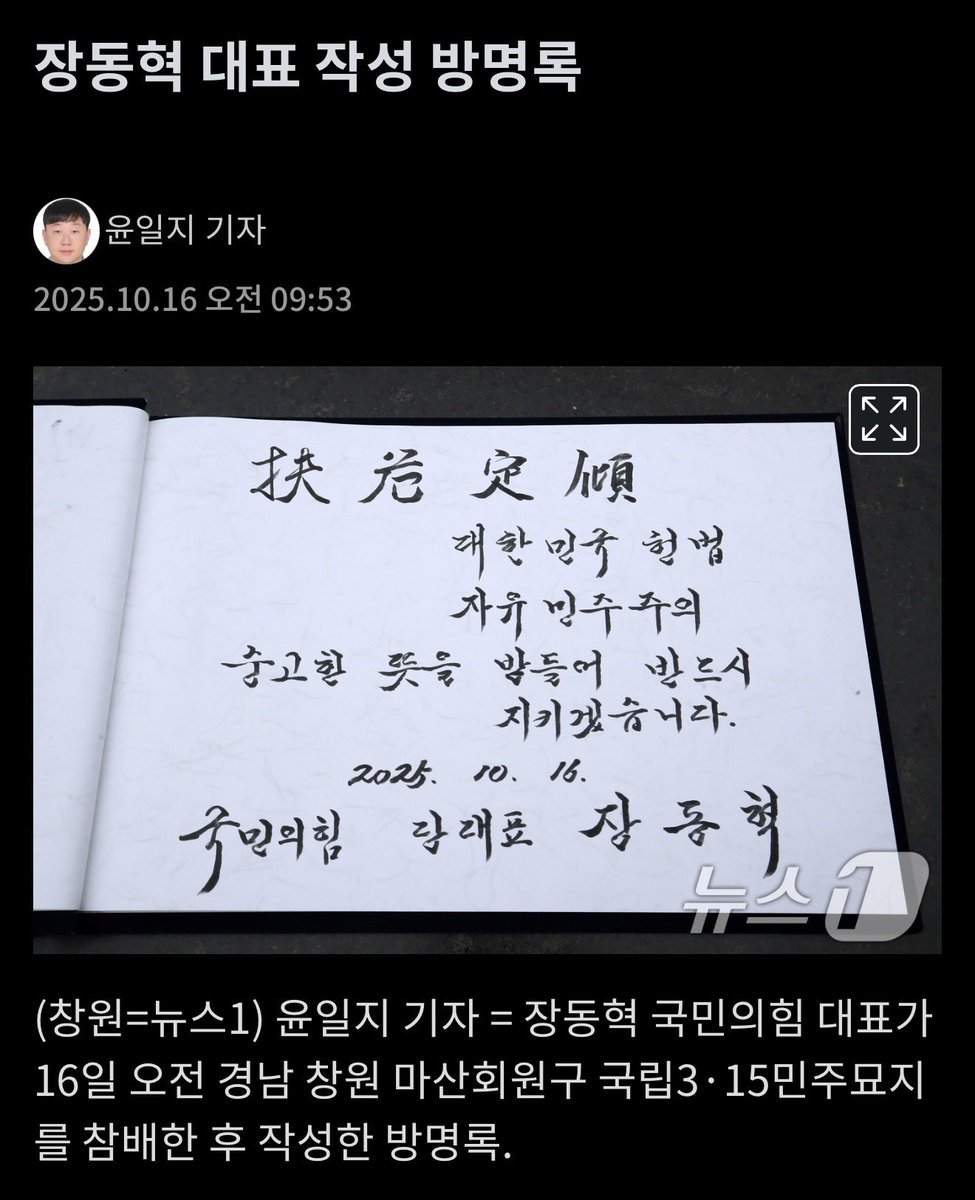 장동혁 대표 작성 방명록
윤일지 기자
2025.10.16 오전 09:53
扶危定傾
대한민국 헌법
자유민주주의
숭고한 뜻을 받들어 반드시
지키겠습니다.
2025. 10. 16.
국민의힘 당대표 장동혁
뉴스1
(창원=뉴스1) 윤일지 기자 = 장동혁 국민의힘 대표가
16일 오전 경남 창원 마산회원구 국립3·15민주묘지
를 참배한 후 작성한 방명록.